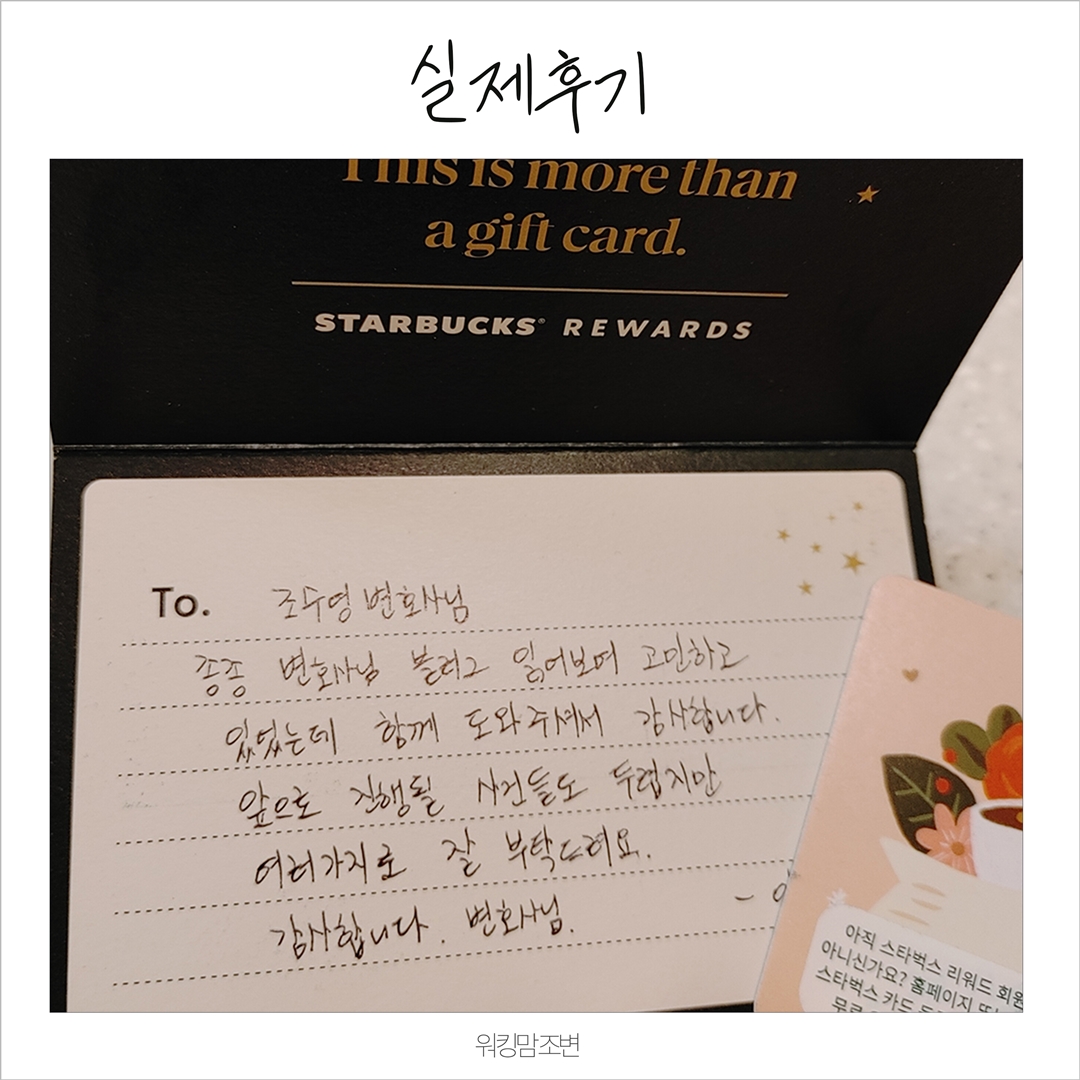 실제후기
This is more than
a gift card.
STARBUCKS® REWARDS
To. 조수영 변호사님
종종 변호사님 블러그 읽어보며 고민하고
있었는데 함께 도와주셔서 감사합니다.
앞으로 진행될 사건들도 두렵지만
여러가지로 잘 부탁드려요.
감사합니다. 변호사님.
아직 스타벅스 리워드 회원
아니신가요? 홈페이지 또는
스타벅스 카드
무료
워킹맘조변